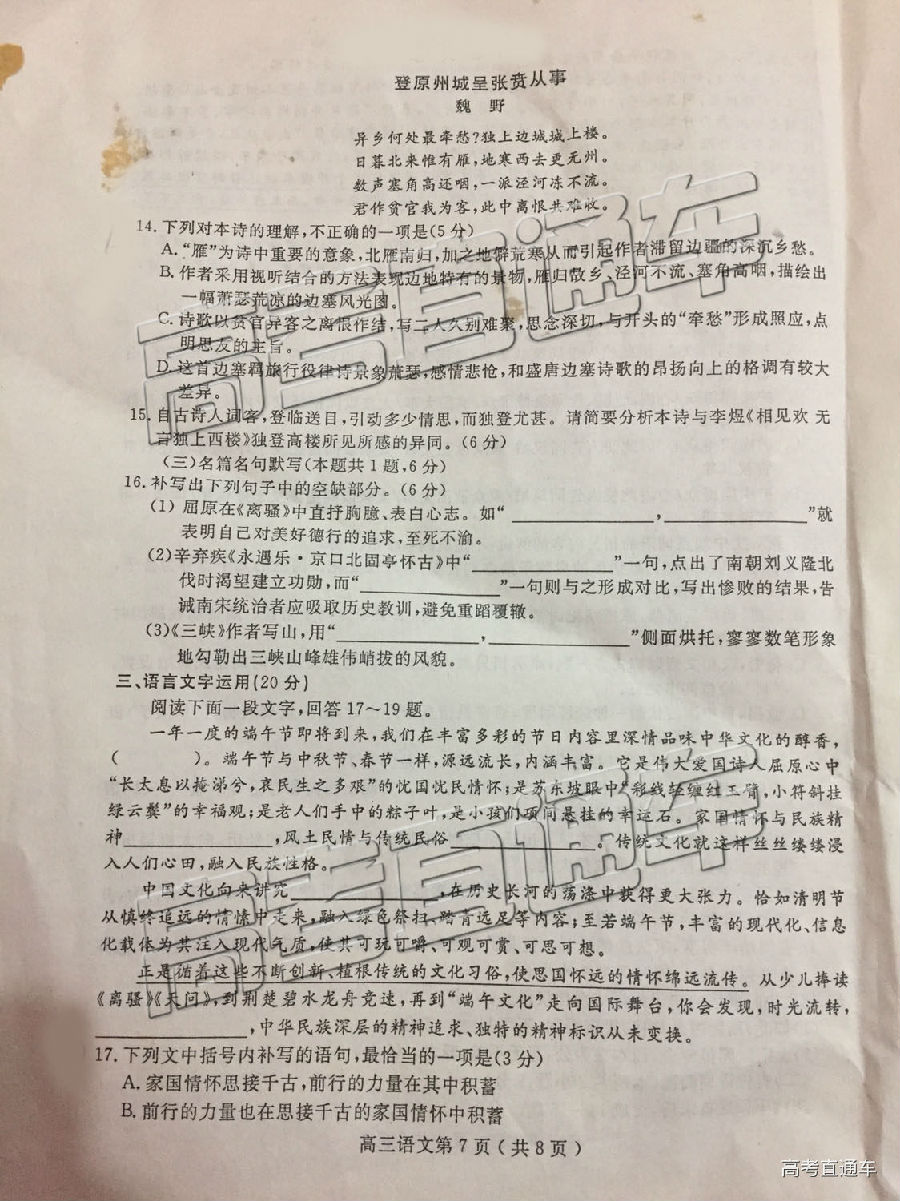 登原州城呈张贲从事
魏 野
异乡何处最牵愁?独上边城城上楼。
日暮北来惟有雁,地寒西去更无州。
数声塞角高还咽,一派泾河冻不流。
君作贫官我为客,此中离恨共难收。
14.下列对本诗的理解,不正确的一项是(5分)
A.“雁”为诗中重要的意象,北雁南归,加之地僻荒寒从而引起作者滞留边疆的深沉乡愁。
B.作者采用视听结合的方法表现边地特有的景物,雁归故乡、泾河不流、塞角高咽,描绘出
一幅萧瑟荒凉的边塞风光图。
C.诗歌以贫官异客之离恨作结,写二人久别难聚,思念深切,与开头的“牵愁”形成照应,点
明思友的主旨。
D.这首边塞羁旅行役律诗景象萧瑟,感情悲怆,和盛唐边塞诗歌的昂扬向上的格调有较大
差异。
15.自古诗人词客,登临送目,引动多少情思,而独登尤甚。请简要分析本诗与李煜《相见欢 无
言独上西楼》独登高楼所见所感的异同。(6分)
(三)名篇名句默写(本题共1题,6分)
16.补写出下列句子中的空缺部分。(6分)
(1) 屈原在《离骚》中直抒胸臆、表白心志。如“____________,____________”就
表明自己对美好德行的追求,至死不渝。
(2)辛弃疾《永遇乐·京口北固亭怀古》中“____________”一句,点出了南朝刘义隆北
伐时渴望建立功勋,而“____________”一句则与之形成对比,写出惨败的结果,告
诫南宋统治者应吸取历史教训,避免重蹈覆辙。
(3)《三峡》作者写山,用“____________,____________”侧面烘托,寥寥数笔形象
地勾勒出三峡山峰雄伟峭拔的风貌。
三、语言文字运用(20分)
阅读下面一段文字,回答17~19题。
一年一度的端午节即将到来,我们在丰富多彩的节日内容里深情品味中华文化的醇香,
(      )。端午节与中秋节、春节一样,源远流长,内涵丰富。它是伟大爱国诗人屈原心中
“长太息以掩涕兮,哀民生之多艰”的忧国忧民情怀;是苏东坡眼中“彩线轻缠红玉臂,小符斜挂
绿云鬟”的幸福观;是老人们手中的粽子叶,是小孩们项间悬挂的幸运石。家国情怀与民族精
神____________,风土民情与传统民俗____________。传统文化就这样丝丝缕缕浸
入人们心田,融入民族性格。
中国文化向来讲究____________,在历史长河的荡涤中获得更大张力。恰如清明节
从慎终追远的情愫中走来,融入绿色祭扫、踏青远足等内容;至若端午节,丰富的现代化、信息
化载体为其注入现代气质,使其可玩可嚼、可观可赏、可思可想。
正是循着这些不断创新、植根传统的文化习俗,使思国怀远的情怀绵远流传。从少儿捧读
《离骚》《天问》,到荆楚碧水龙舟竞速,再到“端午文化”走向国际舞台,你会发现,时光流转,
____________,中华民族深层的精神追求、独特的精神标识从未变换。
17.下列文中括号内补写的语句,最恰当的一项是(3分)
A.家国情怀思接千古,前行的力量在其中积蓄
B.前行的力量也在思接千古的家国情怀中积蓄
高三语文第7页(共8页)
高考直通车
高考直通车
高考直通车